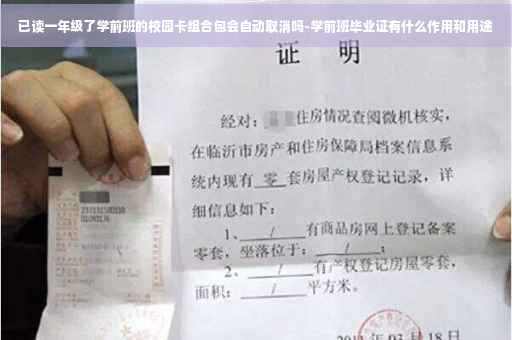 已读一年级了学前班的校园卡组合包会自动取消吗-学前班毕业证有什么作用和用途
证 明
经对：住房情况查阅微机核实，
在临沂市房产和住房保障局档案信息系
统内现有 零 套房屋产权登记记录，详
细信息如下：
1、 / 有商品房网上登记备案
零套，坐落位于： / ；
2、 / 有产权登记房屋零套，
面积： / 平方米。
月 18 日